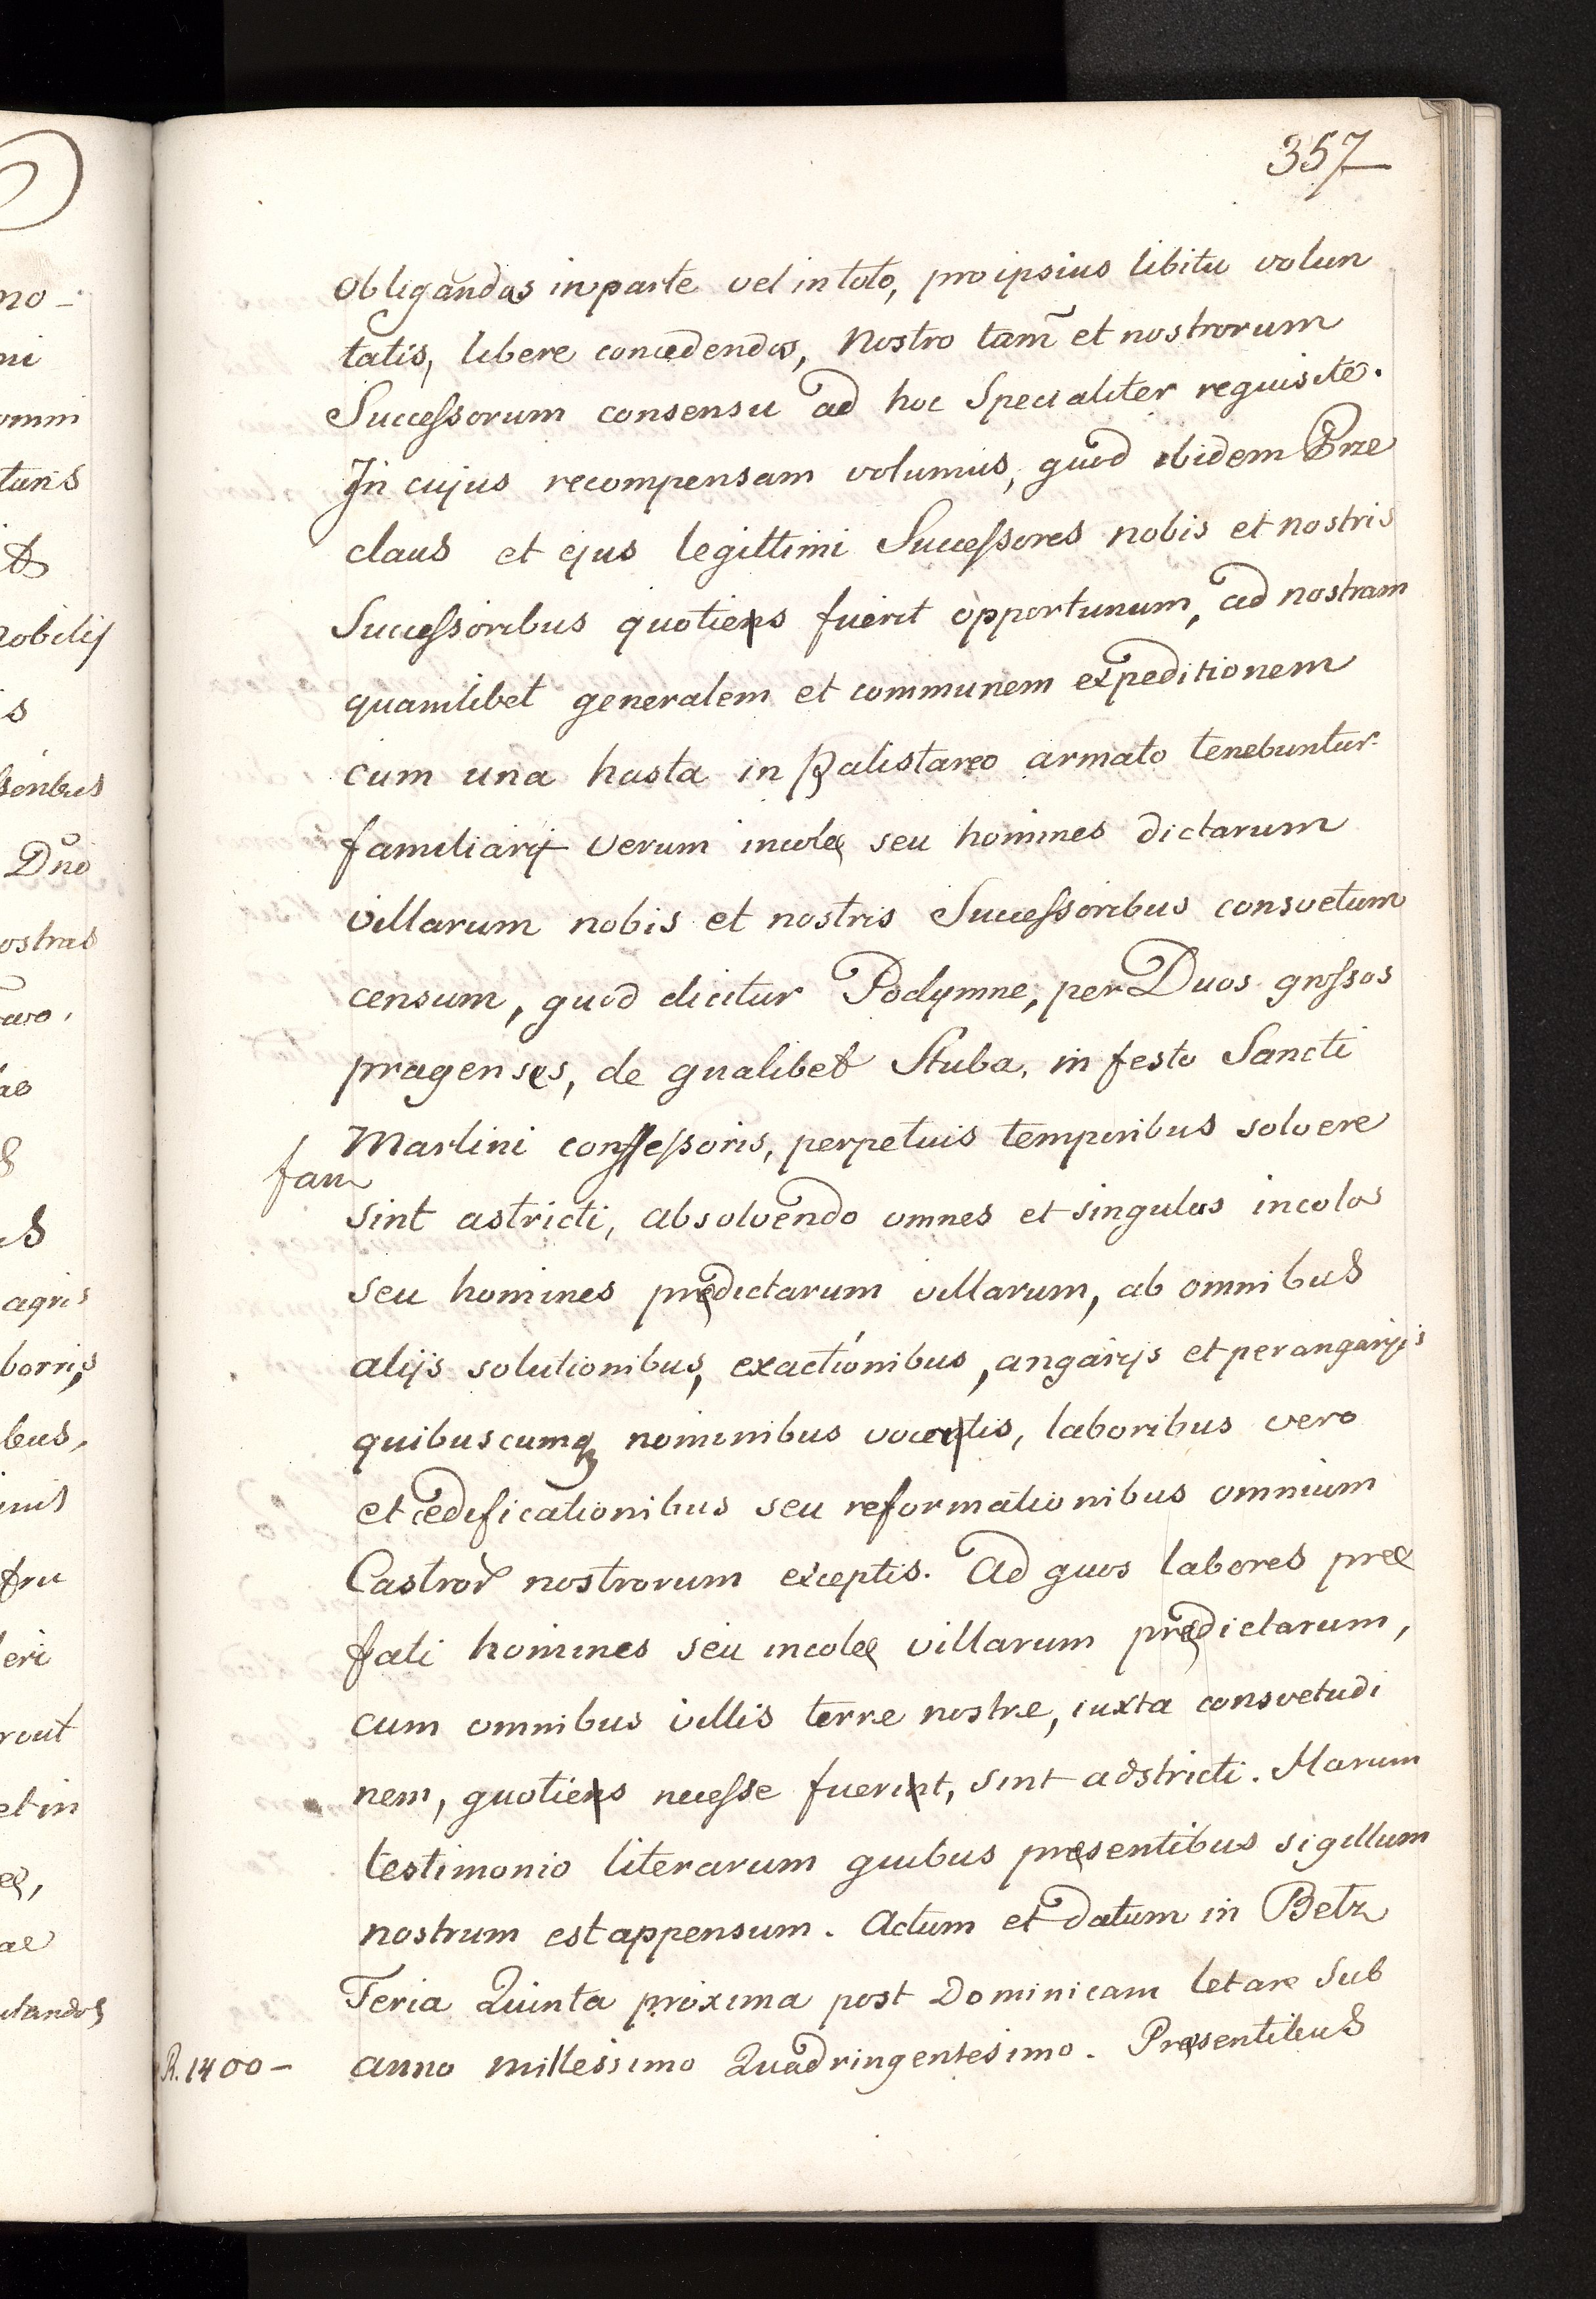 357
obligandas in parte vel in toto, pro ipsius libitu volun
tatis, libere concedendas, Nostro tam̃ et nostrorum
Successorum consensu ad hoc Specialiter requisite.
In cujus recompensam volumus, quod ibidem Prze
claus et ejus legittimi Successores nobis et nostris
Successoribus quotiens fuerit opportunum, ad nostram
quamlibet generalem et communem expeditionem
cum una hasta in Balistareo armato tenebuntur.
familiarij verum incolę seu homines dictarum
villarum nobis et nostris Successoribus consvetum
censum, quod dicitur Podymne, per Duos grossos
pragenses, de qualibet Stuba, in festo Sancti
Martini confessoris, perpetuis temporibus solvere
fam
sint astricti, absolvendo omnes et singulas incolas
seu homines prędictarum villarum, ab omnibus
alijs solutionibus, exactionibus, angarijs et perangarijs
quibuscumq nominibus vocentis, laboribus vero
et ædificationibus seu reformationibus omnium
Castror nostrorum exceptis. Ad quos labores præ
fati homines seu incolę villarum prędictarum,
cum omnibus villis terre nostre, iuxta consvetudi
nem, quotiens necesse fuerint, sint adstricti. Harum
testimonio literarum quibus pręsentibus sigillum
nostrum est appensum. Actum et datum in Betz
Feria Quinta proxima post Dominicam letare Sub
R. 1400 - anno millessimo Quadringentesimo. Pręsentibus
no -
ni
omni
turis
nobilij
is
soribus
Dño
ostras
agris
borrij
bus,
fru
eri
rout
et in
ae
utandos